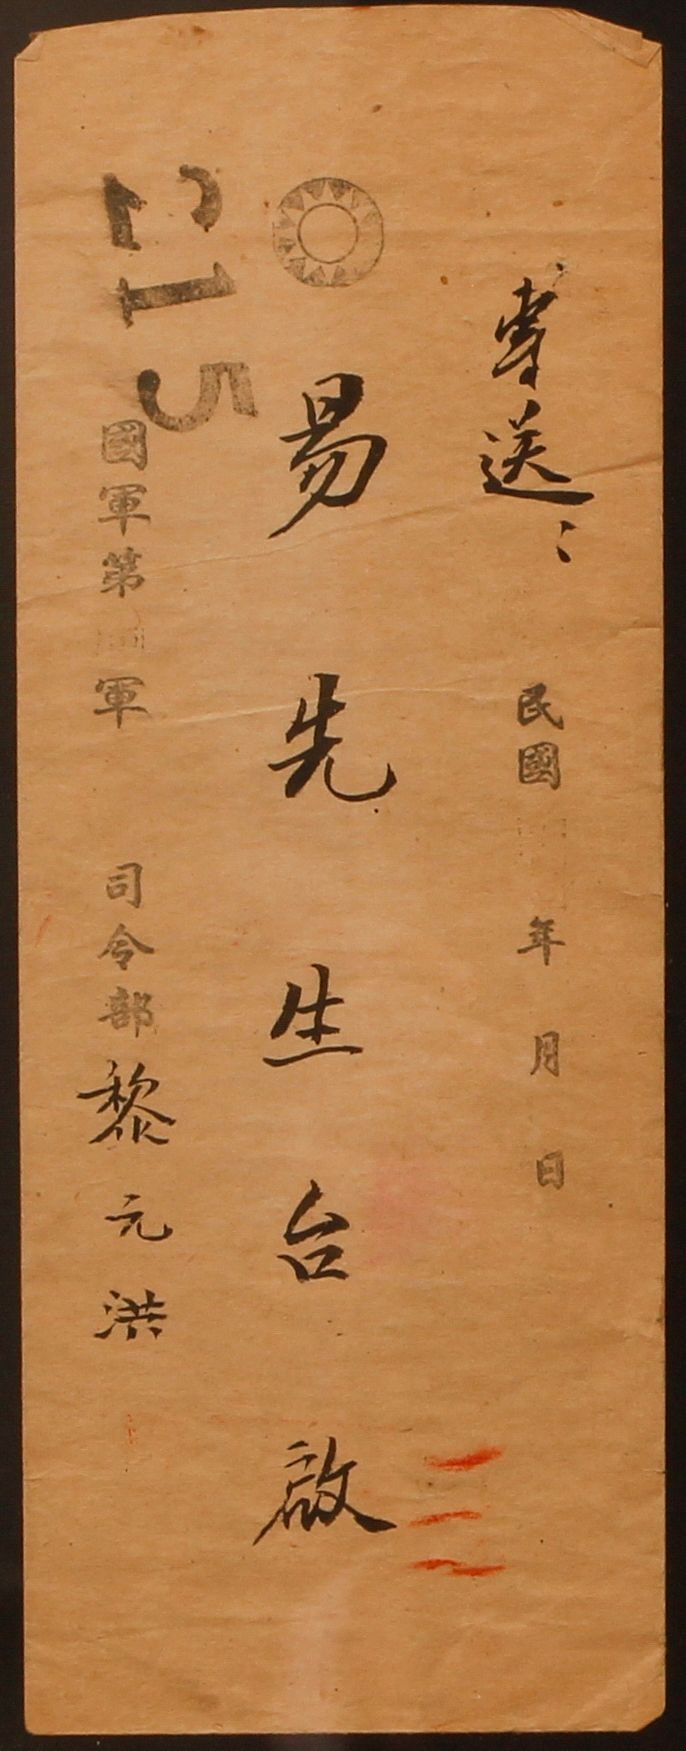 専送
民國 年 月 日
易先生台啟
215
國軍第 軍 司令部 黎元洪
三